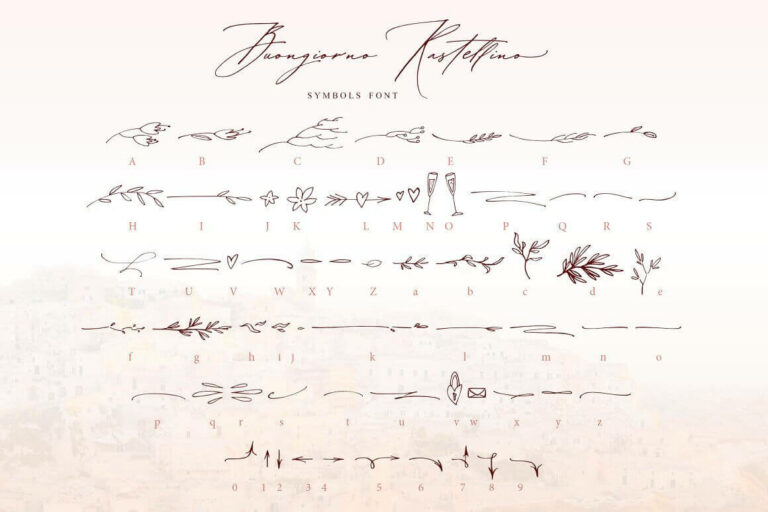 Buongiorno Rastellino
SYMBOLS FONT
A B C D E F G
H I J K L M N O P Q R S
T U V W X Y Z a b c d e
f g h i j k l m n o
p q r s t u v w x y z
0 1 2 3 4 5 6 7 8 9